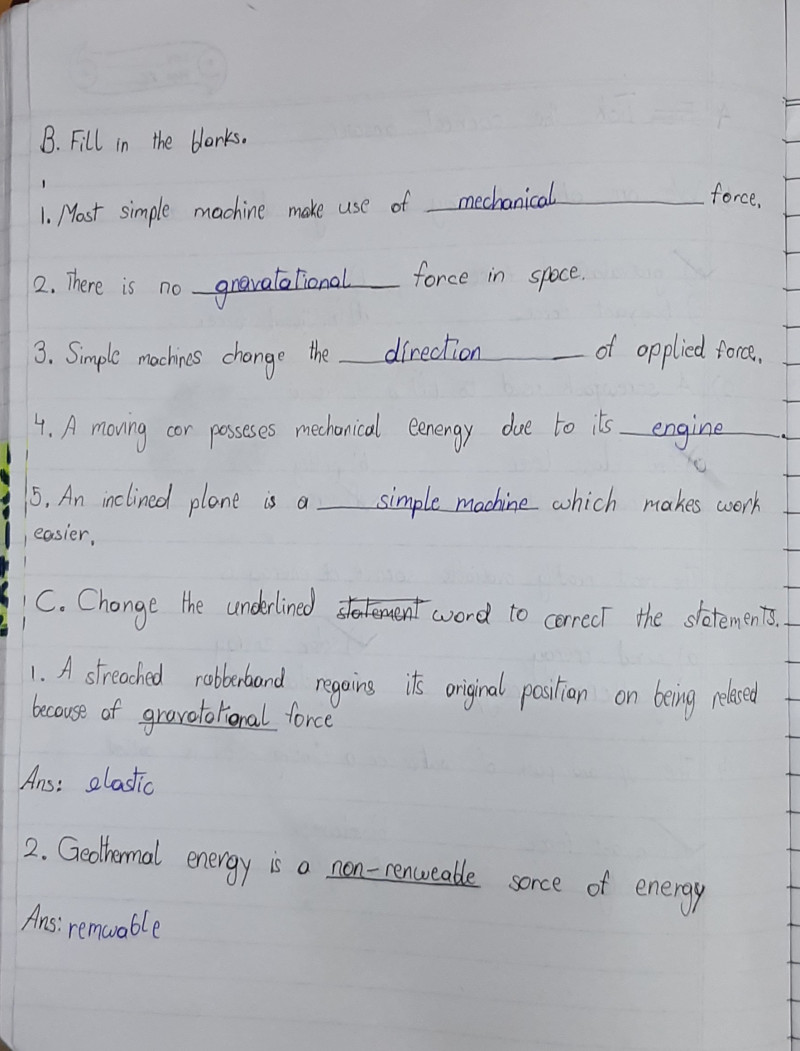 B. Fill in the blanks.
1. Most simple machine make use of mechanical force.
2. There is no gravatational force in space.
3. Simple machines change the direction of applied force.
4. A moving car posseses mechanical eenergy due to its engine.
5. An inclined plane is a simple machine which makes work
easier.
C. Change the underlined statement word to correct the statements.
1. A streached rubberband regains its original position on being relesed
because of gravatational force
Ans: elastic
2. Geothermal energy is a non-renweable sorce of energy
Ans: remwable